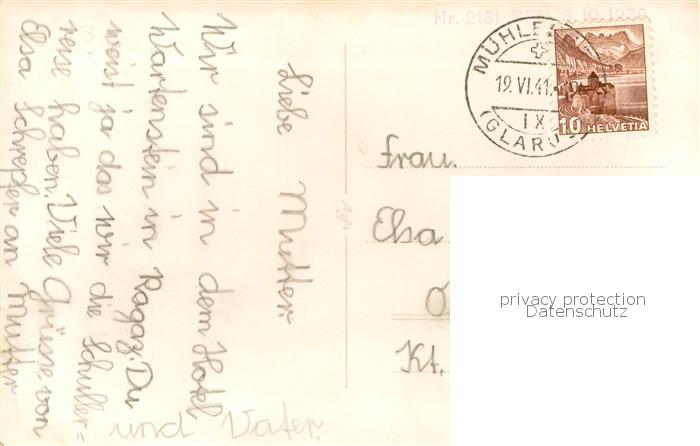 Nr. 2131
MÜHLEH
19. VI. 41.
IX
(GLARUS)
10 HELVETIA
Liebe Mutter
Wir sind in dem Hotel
Wartenstein in Ragaz. Du
weist ja das wir die Schuller=
reise haben. Viele Grüsse von
Elsa Schrepfer an Mutter
und Vater.
Frau.
Elsa
O
Kt.
privacy protection
Datenschutz